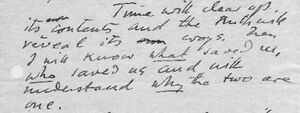 Time will clear up.
its contents and the truth will
reveal its own ways. Then
I will know what saved us,
who saved us and with
understand why the two are
one.